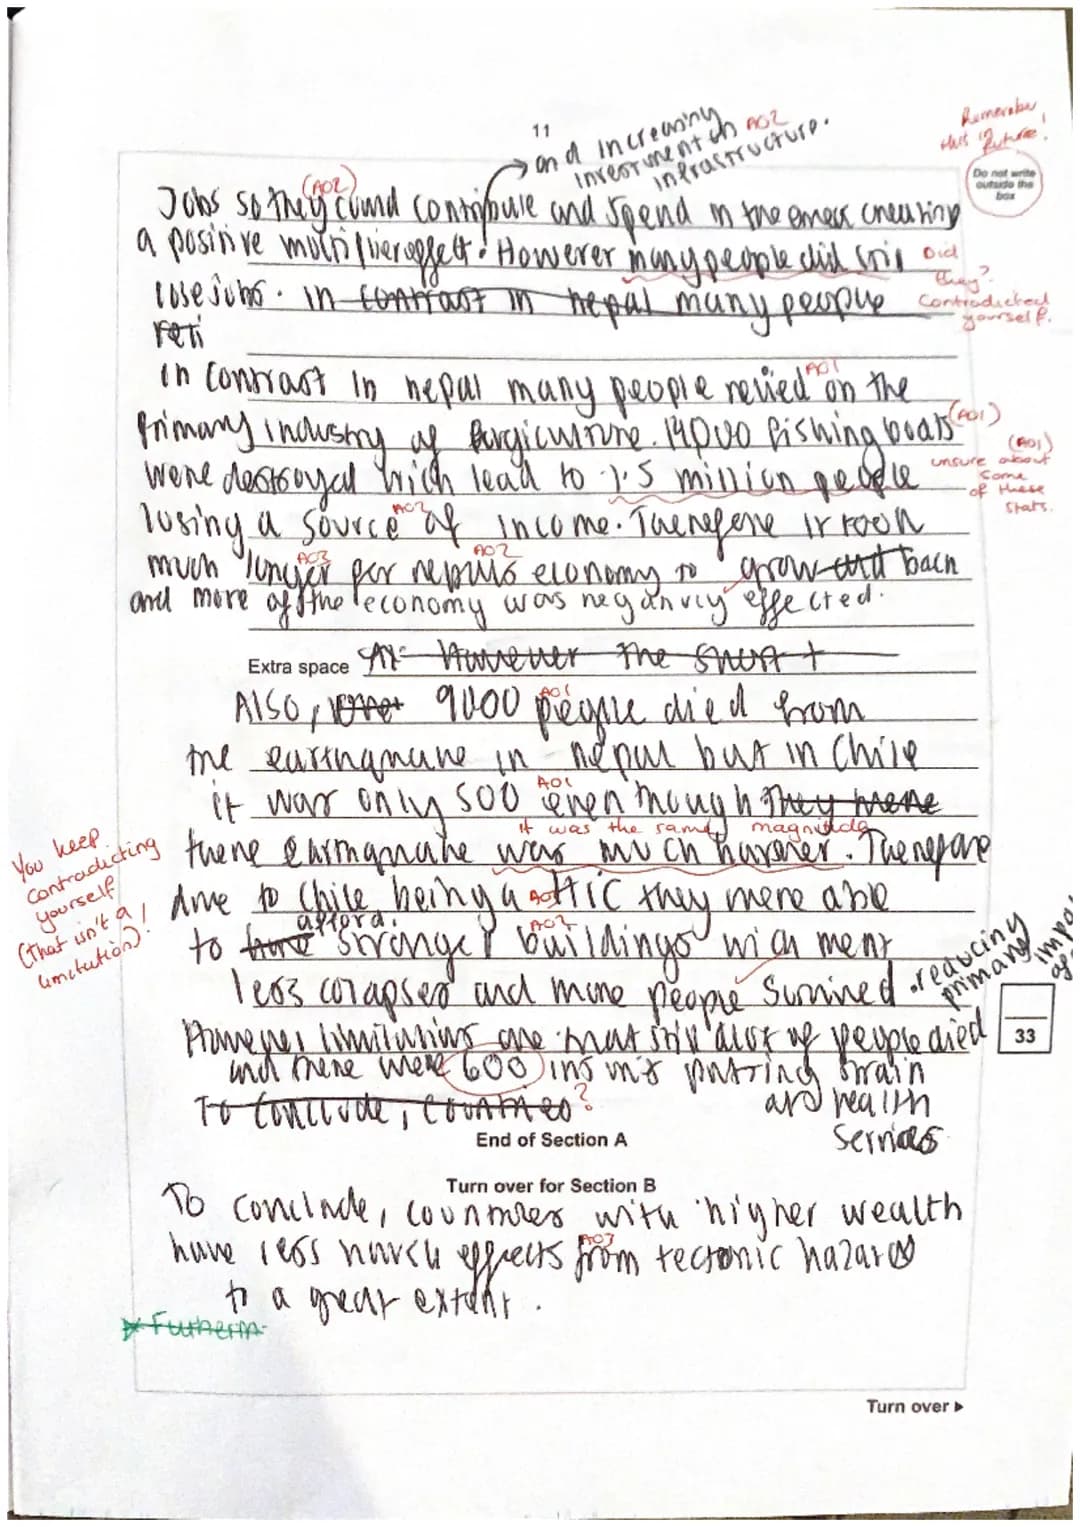 11
and increasing
investment in AO2
infrastructure.
Remember
this in future!
Do not write
outside the
box
(AO2)
Jobs so they could contribute and spend in the creating
a positive multiplier effect. However many people did still
Did
they?
Contradicted
yourself.
lose jobs. in contrast in nepal many people
reli
in contrast in nepal many people relied on the
AO1
primary industry of . 14000 fishing boats
(AO1)
were destroyed wich lead to 1.5 million people
(AO1)
unsure about
some
of these
stats.
losing a source of income. Therefore it took
AO2
much longer for nepals economy to grow and back
AO3
AO2
and more of the economy was negativly effected.
Extra space However the short t
Also, 9000 people died from
AO1
the earthquake in nepal but in Chile
it was only 500 even though they were
AO1
it was the same magnitude
there earthquake was much harsher. Therefore
You keep
contradicting
yourself
(that isn't a
limitation)!
due to Chile being a HIC they were able
AO1
to have afford. stronger buildings wich ment
AO2
less colapsed and more people survived .reducing
primary
impa
of
However limitations are that still alot of people died
33
and there were 600 putting strain
and health
services
To conclude, countries ?
End of Section A
Turn over for Section B
To conclude, countries with higher wealth
have less harsh effects from tectonic hazards
AO3
to a great extent.
Furtherm
Turn over ►